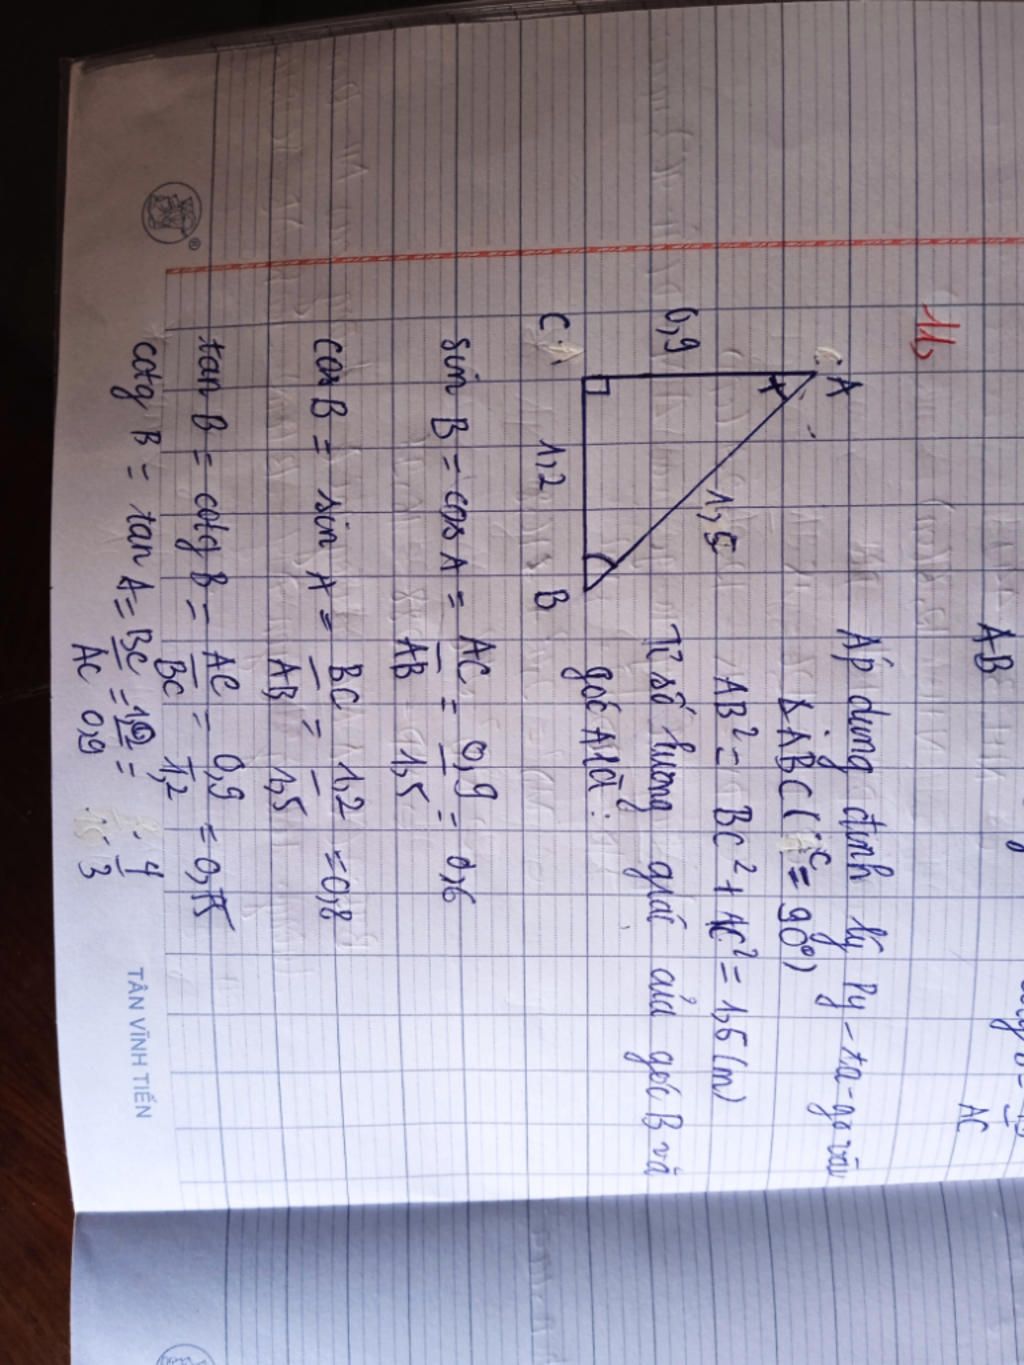 AB
AC
11,
A
0,9
1,5
C
1,2
B
Áp dụng định lý Py-ta-go vào
ΔABC (C = 90°)
AB² = BC² + AC² = 1,5 (m)
Tỉ số lượng giác của góc B và
góc A là:
sin B = cos A = AC/AB = 0,9/1,5 = 0,6
cos B = sin A = BC/AB = 1,2/1,5 = 0,8
tan B = cotg B = AC/BC = 0,9/1,2 = 0,75
cotg B = tan A = BC/AC = 1,2/0,9 = 4/3
TÂN VĨNH TIẾN
®